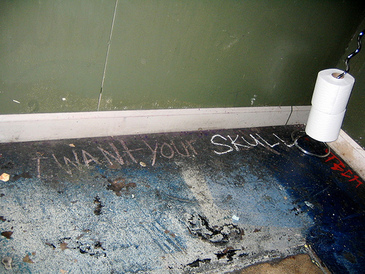 I WANT YOUR SKULL